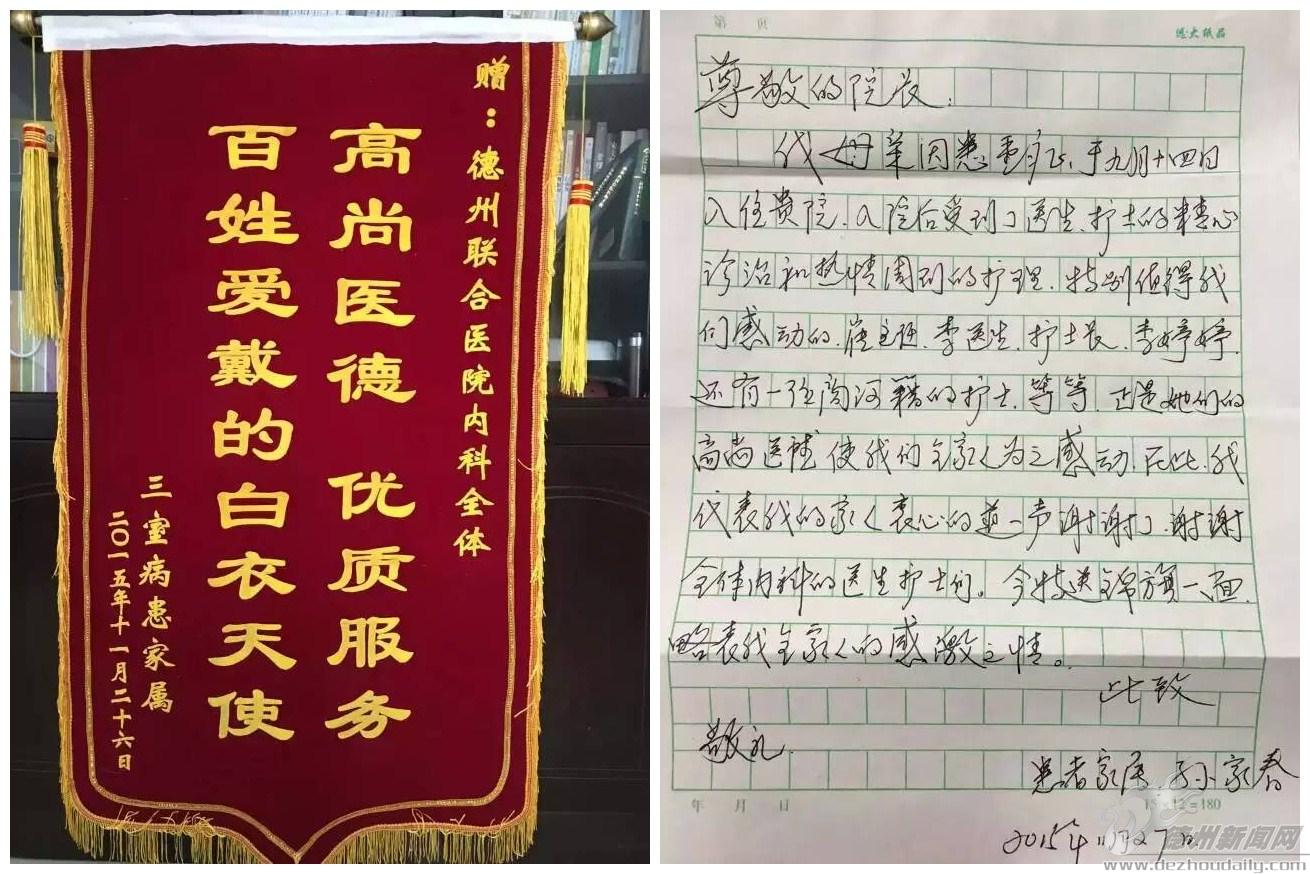 赠：德州联合医院内科全体
高尚医德 优质服务
百姓爱戴的白衣天使
三室病患家属
二〇一五年十一月二十六日
第 页
远大纸品
尊敬的院长：
我母亲因患重症、于九月十四日
入住贵院、入院后受到了医生、护士的精心
诊治和热情周到的护理、特别值得我
们感动的、崔主任、李医生、护士长、李婷婷、
还有一位临沂籍的护士、等等、正是她们的
高尚医德使我们全家人为之感动、在此、我
代表我的家人衷心的道一声谢谢了、谢谢
全体内科的医生护士们。今特送锦旗一面、
略表我全家人的感激之情。
此致
敬礼
患者家属 孙家春
年 月 日
15×12=180
2015年11月27日
德州新闻网
www.dezhoudaily.com